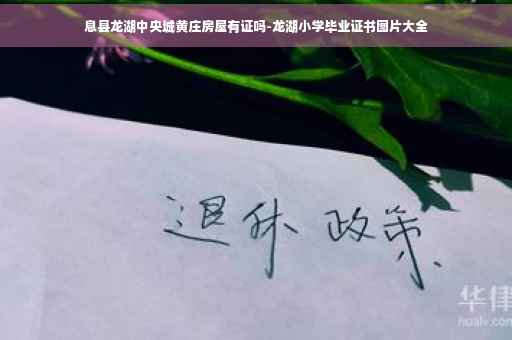 息县龙湖中央城黄庄房屋有证吗-龙湖小学毕业证书图片大全
退休 政策
华律
hualv.com